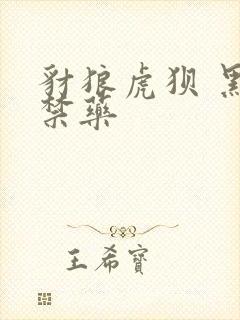 豺狼虎狈 黑
禁药
王希寶